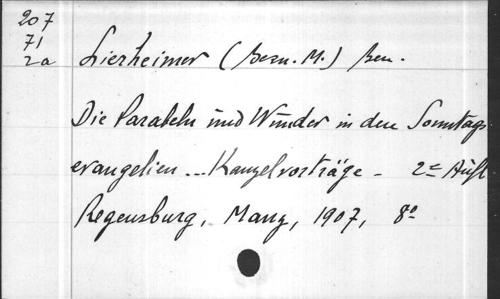 207
71
2a
Lierheimer (Bern. M.) Ben.
Die Parabeln und Wunder in den Sonntags
evangelien ... Kanzelvorträge - 2e Aufl
Regensburg, Manz, 1907, 8o